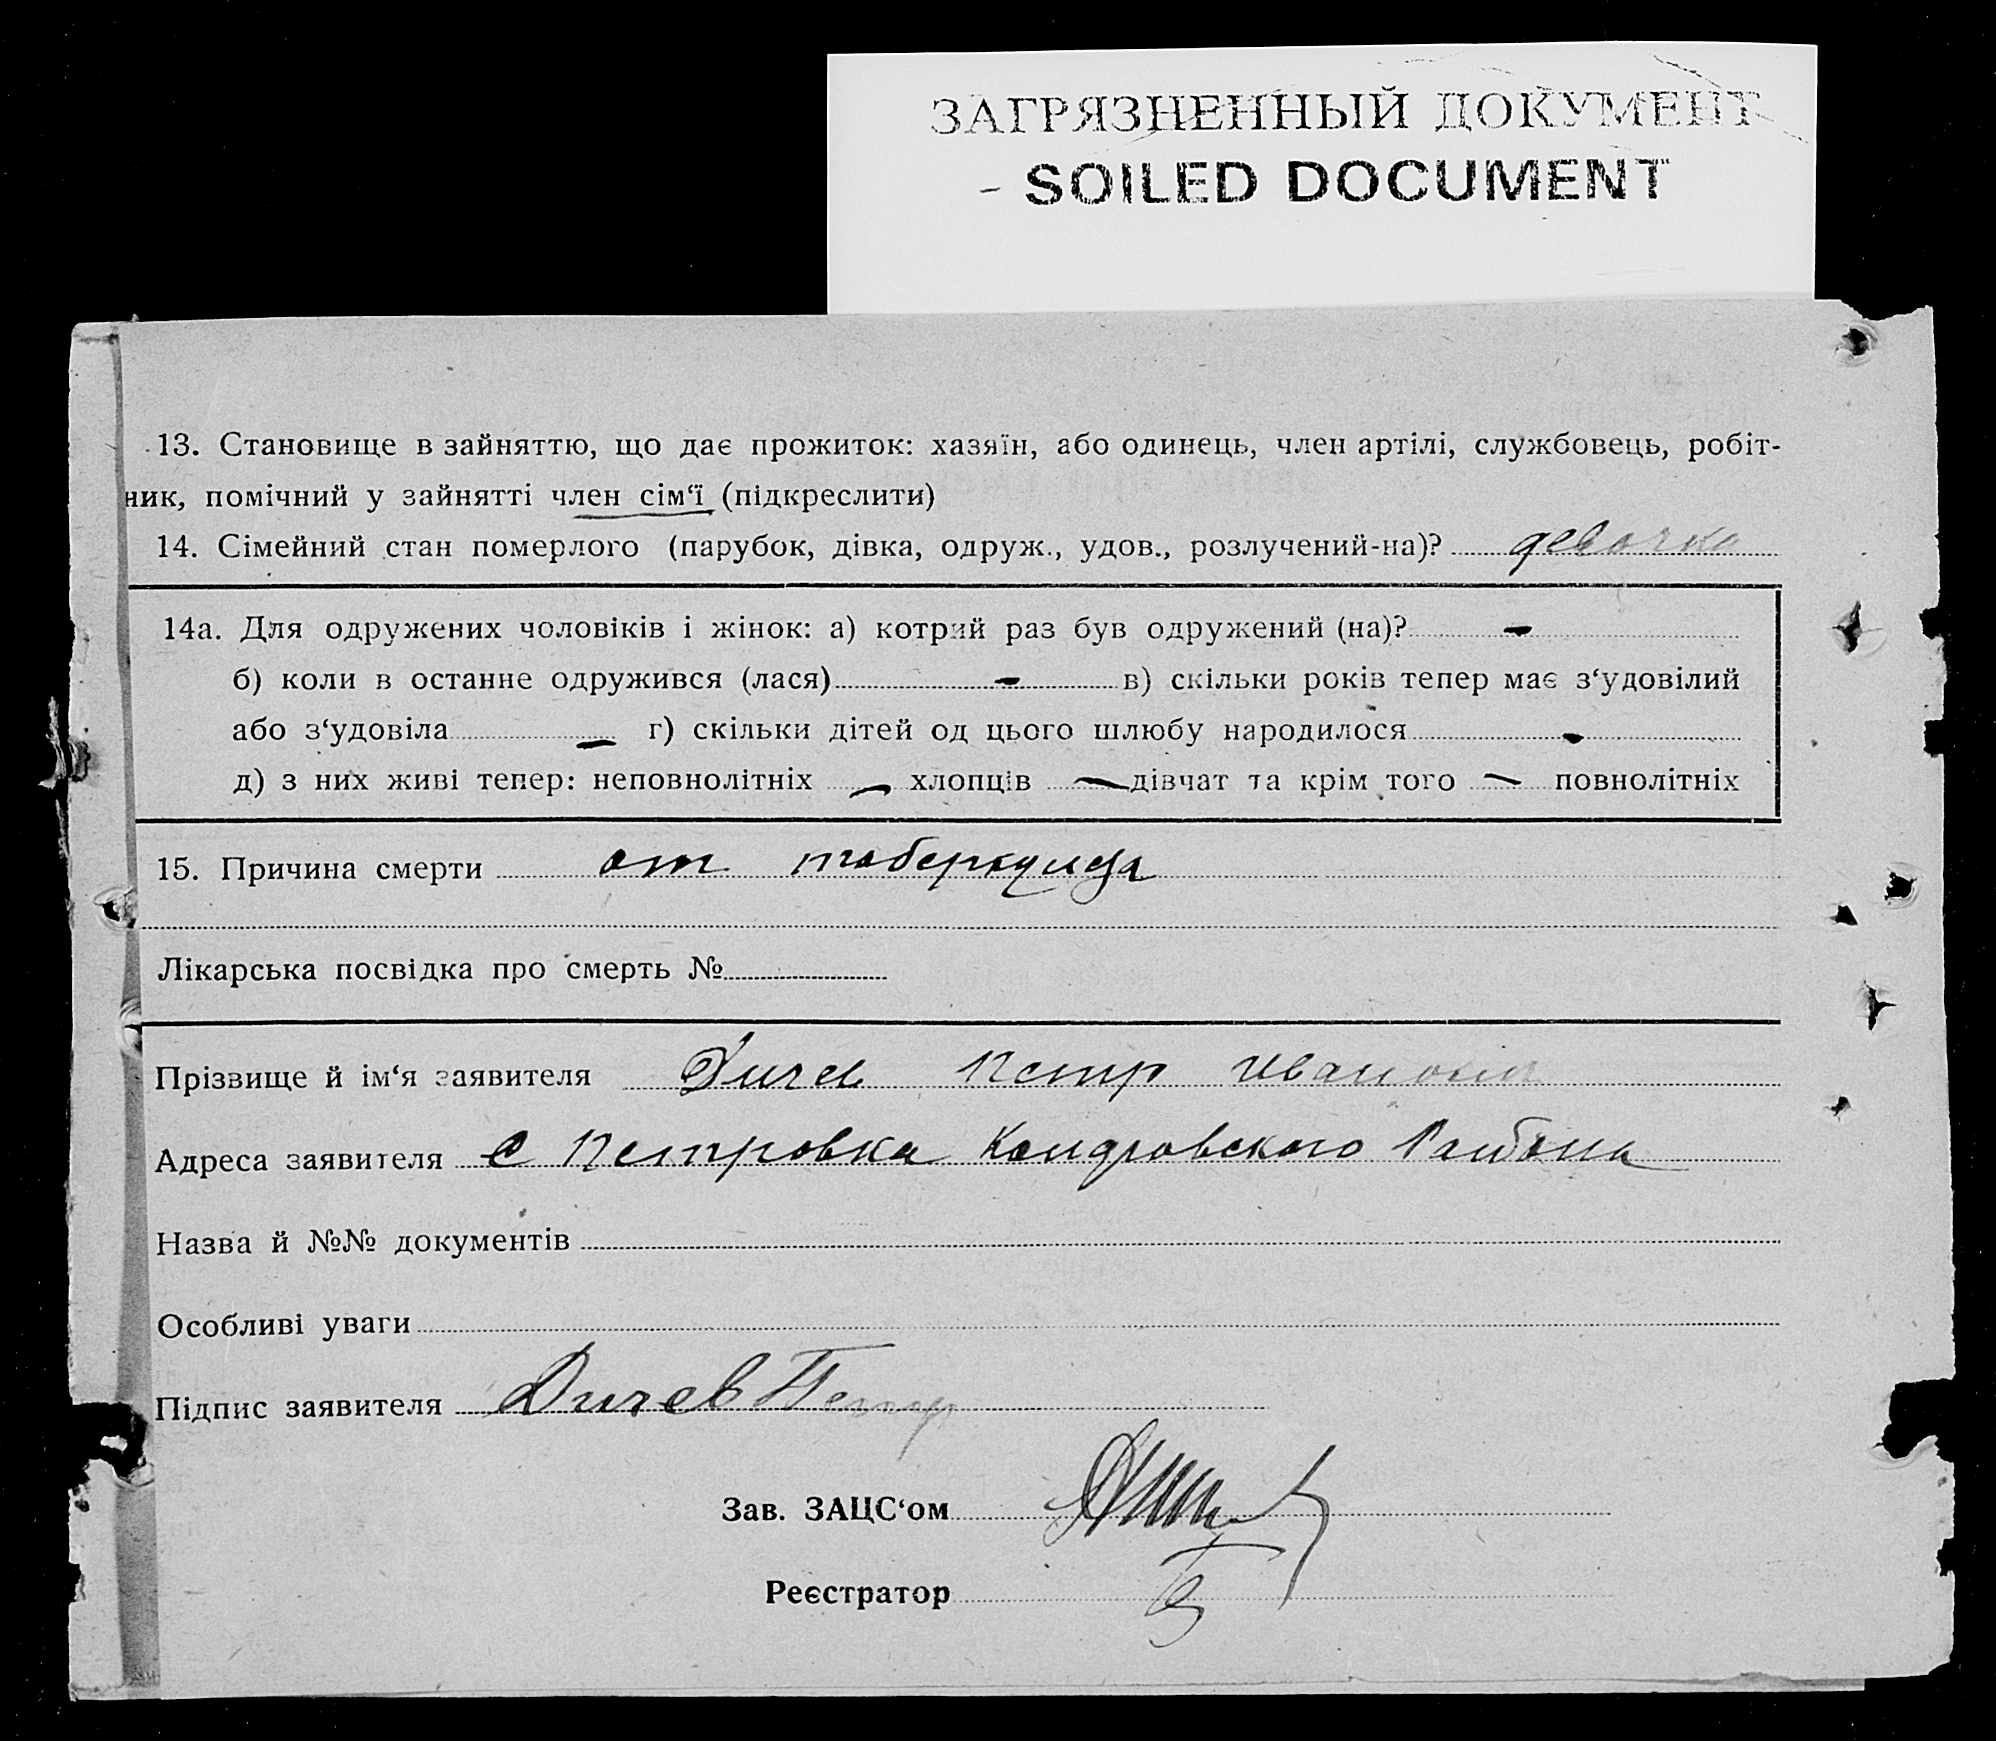 ЗАГРЯЗНЕННЫЙ ДОКУМЕНТ
- SOILED DOCUMENT
13. Становище в зайняттю, що дає прожиток: хазяїн, або одинець, член артілі, службовець, робіт-
ник, помічний у зайнятті член сім‘ї (підкреслити)
14. Сімейний стан померлого (парубок, дівка, одруж., удов., розлучений-на)? девочка
14а. Для одружених чоловіків і жінок: а) котрий раз був одружений (на)? -
б) коли в останне одружився (лася) - в) скільки років тепер має з‘удовілий
або з‘удовіла - г) скільки дітей од цього шлюбу народилося -
д) з них живі тепер: неповнолітніх - хлопців - дівчат та крім того - повнолітніх
15. Причина смерти от
Лікарська посвідка про смерть №
Прізвище й ім‘я заявителя Дичев Петр Иванович
Адреса заявителя с Петровка Района
Назва й №№ документів
Особливі уваги
Підпис заявителя Дичев Петр
Зав. ЗАЦС‘ом
Реєстратор